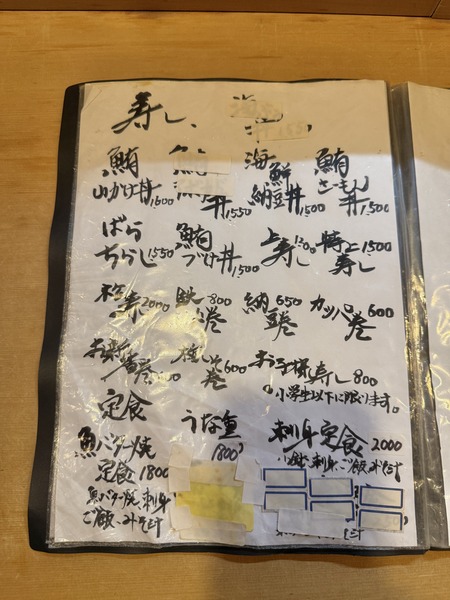 寿し、丼
鮪山かけ丼1600
丼1550
海鮮納豆丼1500
鮪さーもん丼1,500
ばらちらし1550
鮪づけ丼1,500
上寿し1500
特上寿し1500
寿し2000
鉄火巻800
納豆巻650
カッパ巻600
お新香巻
梅しそ巻600
お子様寿し800
小学生以下に限ります。
定食
魚バター焼定食1800
魚バター焼、刺身
ご飯、みそ汁
うな重1800
刺身定食2000
小鉢、刺身、ご飯、みそ汁